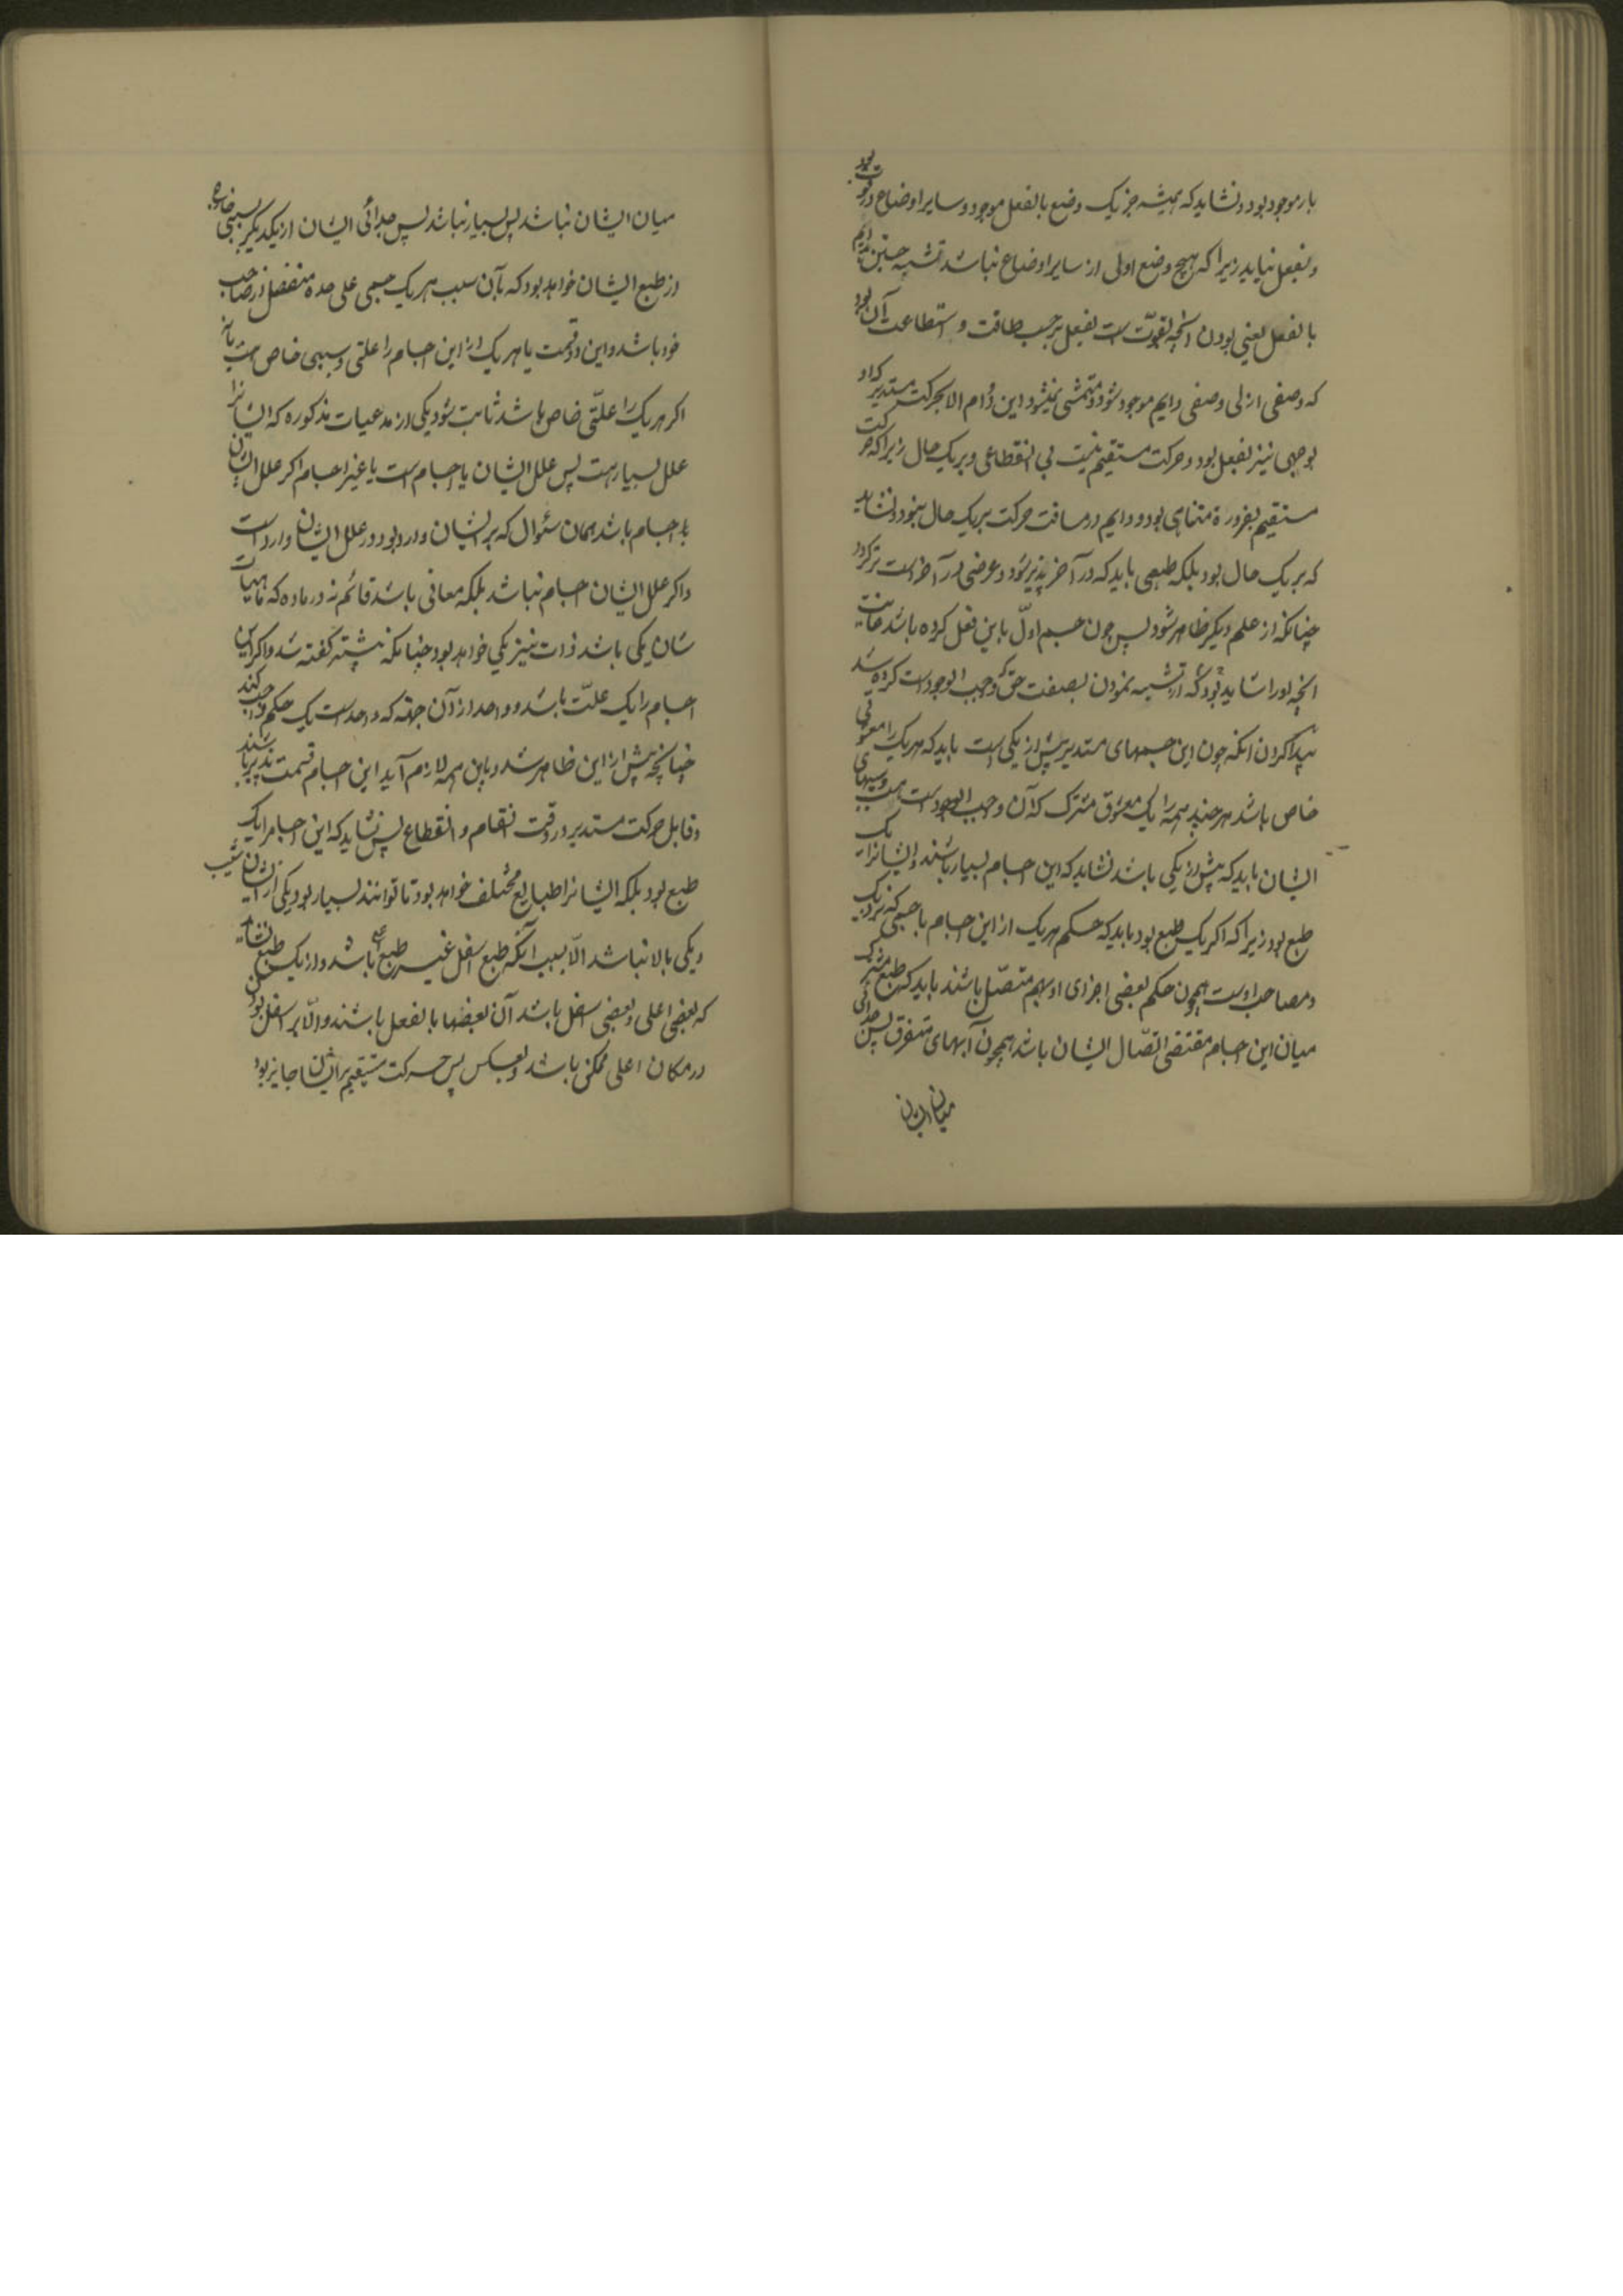 بار موجود بود و نشاید که همیشه جز یک وضع بالفعل موجود و سایر اوضاع در قوت بود
و بفعل نیاید زیرا که هیچ وضع اولی از سایر اوضاع نباشد تشبه چنین دایم
بالفعل یعنی بودن آنچه بقوّت است بفعل بر حسب طاقت و استطاعت آن بود
که وصفی ازلی وصفی دایم موجود شود و متمشی نمیشود این دوام الا بحرکت مستدیر که او
بوجهی نیز بفعل بود و حرکت مستقیم نیست بی انقطاعی و بر یک حال زیرا که حرکت
مستقیم بضرورة متناهی بود و دایم در مسافت حرکت بر یک حال نبود و نشاید
که بر یک حال بود بلکه طبعی باید که در آخر پذیر شود و عرضی در آخر است تر گردد
چنانکه از علم دیگر ظاهر شود پس چون جسم اول با این فعل کرده باشد غایت
آنچه او را شاید بود که از تشبیه نمودن بصفت حق واجب الوجود است کرده شد
پیدا کردن آنکه چون این جسمهای مستدیر بیش از یکی است باید که هر یک را معشوقی
خاص باشد هر چند همه را یک معشوق مشترک که آن واجب الوجود است هست و سببهای
ایشان باید که بیش از یکی باشد نشاید که این اجسام بسیار باشند و ایشانرا یک
طبع بود زیرا که اگر یک طبع بود باید که حکم هر یک از این اجسام با جسمی که نزدیک
و مصاحب اوست همچون حکم بعضی اجزای او بهم متصّل باشند باید که طبع مشترک
میان این اجسام مقتضی اتصّال ایشان باشد همچون آبهای متفرق پس جدائی
میان ایشان
میان ایشان نباشد پس بسیار نباشد پس جدائی ایشان از یکدیگر بسببی خارج
از طبع ایشان خواهد بود که بآن سبب هر یک جسمی علی حده منفصل از صاحب
خود باشد و این دو قسمت یا هر یک از این اجسام را علتی و سببی خاص هست یا نه
اگر هر یک را علّتی خاص باشد ثابت شود یکی از مدعیات مذکوره که ایشانرا
علل بسیار هست پس علل ایشان یا اجسام است یا غیر اجسام اگر علل ایشان
اجسام باشد همان سئوال که بر ایشان وارد بود در علل ایشان وارد است
و اگر علل ایشان اجسام نباشد بلکه معانی باشد قائم نه در ماده که ماهیات
شان یکی باشد ذات نیز یکی خواهد بود چنانکه پیشتر گفته شد و اگر این
اجسام را یک علّت باشد و واحد از آن جهة که واحد است یک حکم واجب کند
چنانچه پیش از این ظاهر شد و باین همه لازم آید این اجسام قسمت پذیر باشند
و قابل حرکت مستدیر در وقت انقسام و انقطاع پس نشاید که این اجسامرا یک
طبع بود بلکه ایشانرا طبایع مختلف خواهد بود تا توانند بسیار بود یکی از ایشان شیب
و یکی بالا نباشد الّا بسبب آنکه طبع اسفل غیر طبع اعلی باشد و از یک طبع نشاید
که بعضی اعلی و بعضی اسفل باشد آن بعضها بالفعل باشند و الّا بر اسفل بودن
در مکان اعلی ممکن باشد و بعکس پس حرکت مستقیم بر ایشان جایز بود